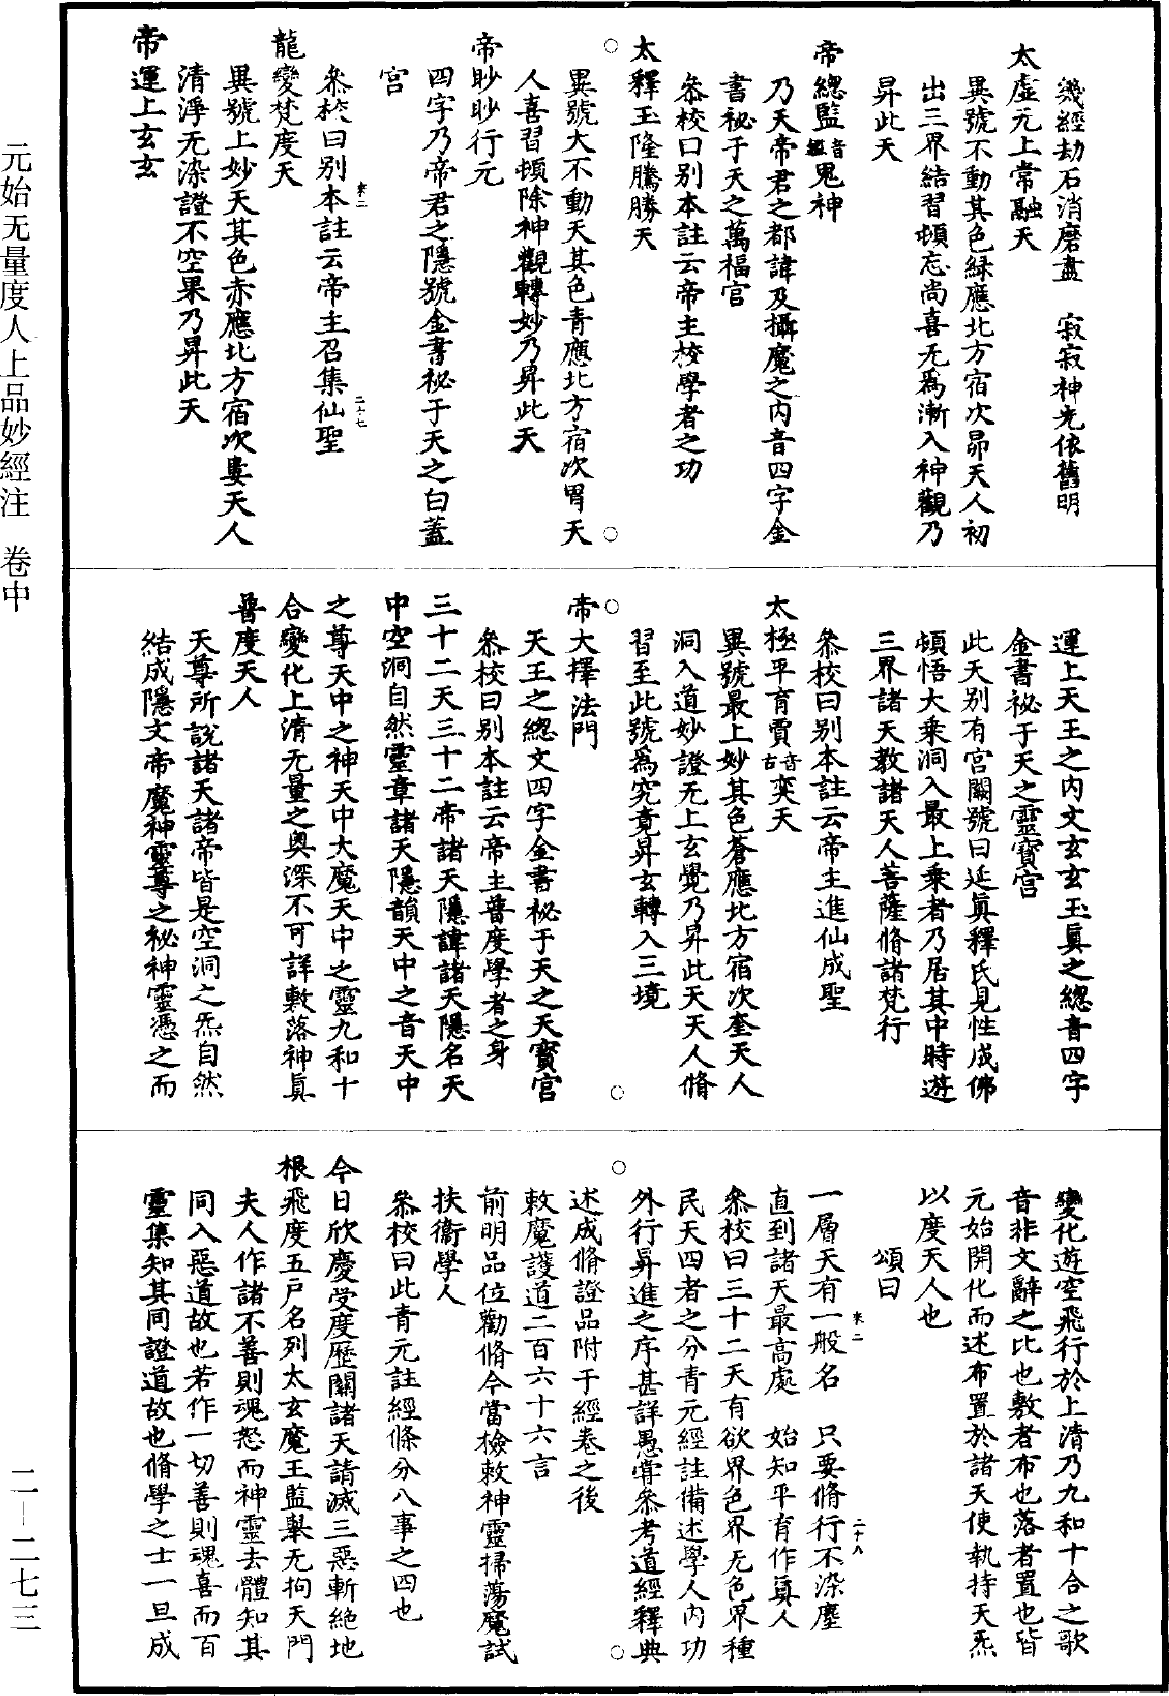 幾經劫石消磨盡　寂寂神光依舊明
太虛无上常融天
異號不動其色綠應北方宿次昴天人初
出三界結習頓忘尚喜无爲漸入神觀乃
昇此天
帝總監音鑑鬼神
乃天帝君之都諱及攝魔之內音四字金
書祕于天之萬福宮
叅校曰別本註云帝主校學者之功
太釋玉隆騰勝天
異號大不動天其色青應北方宿次胃天
人喜習頓除神觀轉妙乃昇此天
帝眇眇行元
四字乃帝君之隱號金書祕于天之白蓋
宮
叅校曰別本註云帝主召集仙聖
來二　二十七
龍變梵度天
異號上妙天其色赤應北方宿次婁天人
清淨无染證不空果乃昇此天
帝運上玄玄
運上天王之內文玄玄玉眞之總音四字
金書祕于天之靈寶宮
此天別有宮闕號曰延眞釋氏見性成佛
頓悟大乘洞入最上乘者乃居其中時遊
三界諸天教諸天人菩薩脩諸梵行
叅校曰別本註云帝主進仙成聖
太極平育賈音古奕天
異號最上妙其色蒼應北方宿次奎天人
洞入道妙證无上玄覺乃昇此天天人脩
習至此號爲究竟昇玄轉入三境
帝大擇法門
天王之總文四字金書祕于天之天寶宮
叅校曰別本註云帝主普度學者之身
三十二天三十二帝諸天隱諱諸天隱名天
中空洞自然靈章諸天隱韻天中之音天中
之尊天中之神天中大魔天中之靈九和十
合變化上清无量之奧深不可詳敷落神眞
普度天人
天尊所說諸天諸帝皆是空洞之炁自然
結成隱文帝魔神靈尊之祕神靈憑之而
變化遊空飛行於上清乃九和十合之歌
音非文辭之比也敷者布也落者置也皆
元始開化而述布置於諸天使執持天炁
以度天人也
頌曰
一層天有一般名　只要脩行不染塵
來二　二十八
直到諸天最高處　始知平育作眞人
叅校曰三十二天有欲界色界无色界種
民天四者之分青元經註備述學人內功
外行昇進之序甚詳愚嘗叅考道經釋典
述成脩證品附于經卷之後
敕魔護道二百六十六言
前明品位勸脩今當檢敕神靈掃蕩魔試
扶衞學人
叅校曰此青元註經條分八事之四也
今日欣慶受度歷關諸天請滅三惡斬絕地
根飛度五戶名列太玄魔王監舉无拘天門
夫人作諸不善則魂怒而神靈去體知其
同入惡道故也若作一切善則魂喜而百
靈集知其同證道故也脩學之士一旦成
元始无量度人上品妙經注　卷中
二—二七三